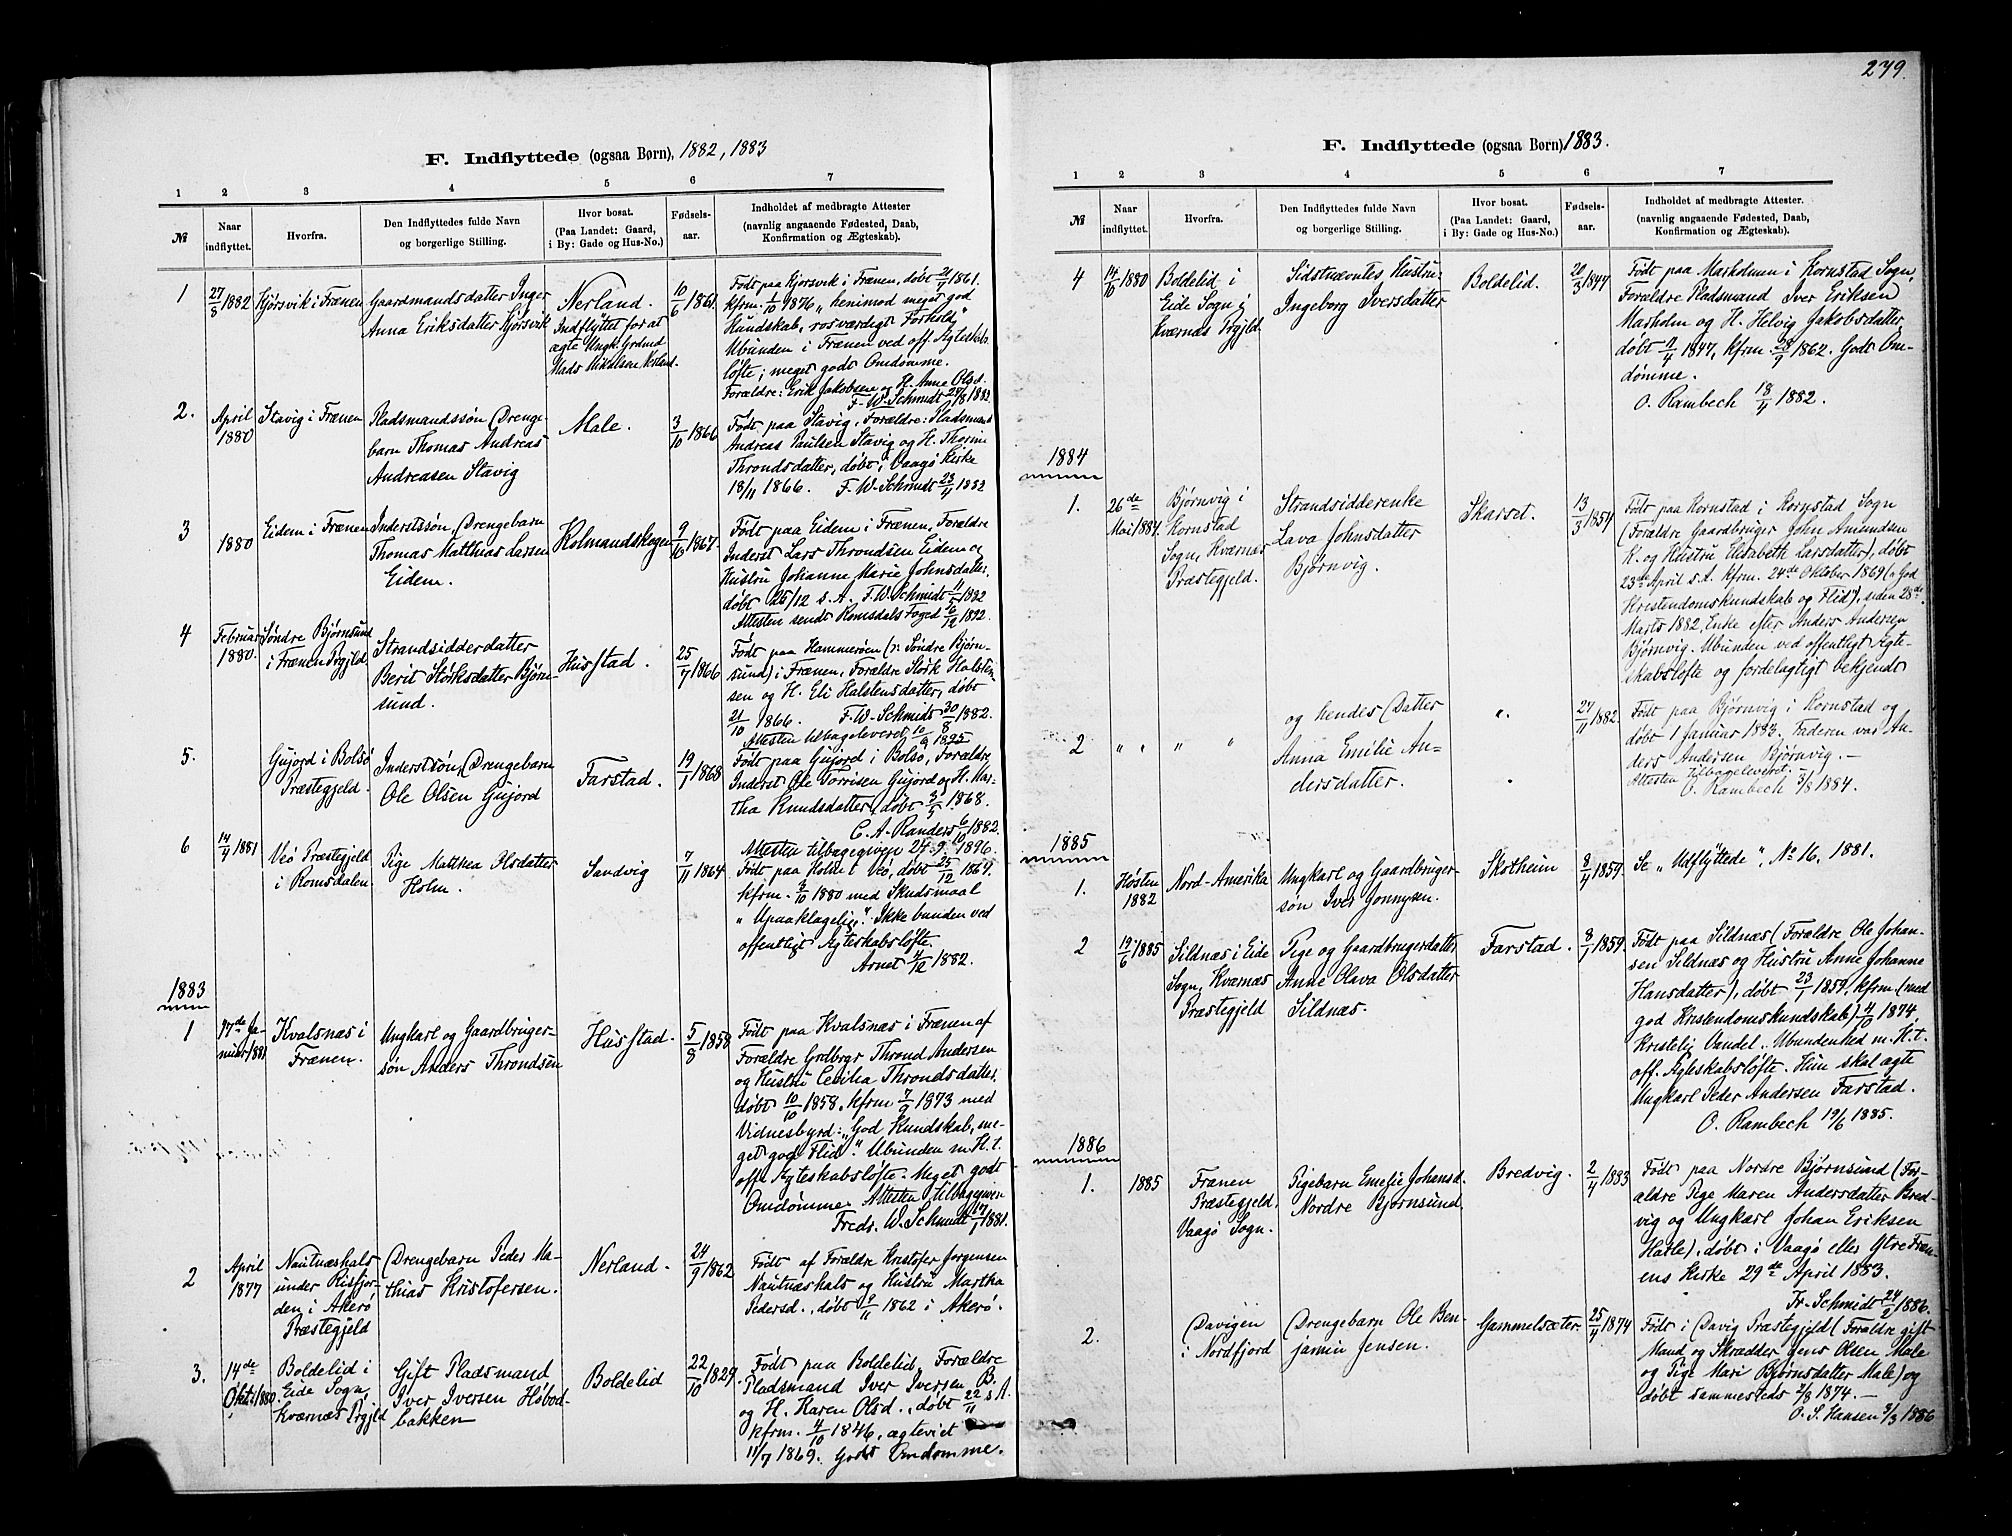 F. Indflyttede (ogsaa Børn), 1882, 1883
1 2 3 4 5 6 7
№
Naar indflyttet.
Hvorfra.
Den Indflyttedes fulde Navn
og borgerlige Stilling.
Hvor bosat.
(Paa Landet: Gaard,
i By: Gade og Hus-No.)
Fødsels-
aar.
Indholdet af medbragte Attester
(navnlig angaaende Fødested, Daab,
Konfirmation og Ægteskab).
1
27/8 1882
Hjørsvik i Frænen
Gaardmandsdatter Inger
Anna Eriksdatter Hjørsvik
Nerland.
Indflyttet for at
ægte Ungk. Grdmd
Mads Nikolsen Nerland.
10/6 1861
Født paa Hjorsvik i Frænen, døbt 21/7 1861.
kfrm. 1/10 1876 „henimod meget god
Kundskab, rosværdigt Forhold"
Ubunden i Frænen ved off. Ægteskabs-
løfte; meget godt Omdømme.
Forældre: Erik Jakobsen og H. Anne Olsd.
F. W. Schmidt 27/8 1882
2.
April
1880
Stavig i Frænen
Pladsmandssøn (Drenge-
barn Thomas Andreas
Andreasen Stavig
Male.
3/10 1866
Født paa Stavig, Forældre: Pladsmand
Andreas Paulsen Stavig og H. Thorine
Throndsdatter, døbt i Vaagø Kirke
18/11 1866. F. W. Schmidt 23/11 1882
3
1880
Eidem i Frænen
Inderstsøn, Drengebarn
Thomas Matthias Larsen
Eidem.
Kolmandskogen
9/10 1867.
Født paa Eidem i Frænen, Forældre
Inderst Lars Throndsen Eidem og
Hustru Johanne Marie Johnsdatter,
døbt 25/12 s. A. F. W. Schmidt 1882
Attesten sendt Romsdals Foged 1892.
4
Februar
1880.
Søndre Bjørnsund
i Frænen Prgjld.
Strandsidderdatter
Berit Størksdatter Bjørn-
sund.
Husstad.
25/7 1866
Født paa Hammerøen (i Søndre Bjørn-
sund) i Frænen, Forældre Størk Halsten-
sen og H. Eli Halstensdatter, døbt
21/10 1866. F. W. Schmidt 30/8 1882.
Attesten tilbageleveret 10/9 1895
5.
Gujord i Bolsø
Præstegjeld.
Inderstsøn, Drengebarn
Ole Olsen Gujord
Farstad.
19/1 1868
Født paa Gujord i Bolsø, Forældre,
Inderst Ole Torrisen Gujord og H. Mar-
tha Knudsdatter, døbt 3/5 1868.
C. A. Randers 6/10 1882.
Attesten tilbagegiven 24-9-1896.
6
14/4 1881
Veø Præstegjeld
i Romsdalen
Pige Matthea Olsdatter
Holm.
Sandvig
7/11 1864
Født paa Holm i Veø, døbt 25/12 1864.
kfrm. 3/10 1880 med Skudsmaal
„Upaaklagelige". Ikke bunden ved
offentligt Ægteskabsløfte.
Arnet 4/12 1882.
1883
1
17de Ja-
nuar 1881
Kvalsnæs i
Frænen.
Ungkarl og Gaardbruger-
søn Anders Throndsen
Husstad.
5/8 1858
Født paa Kvalsnæs i Frænen af
Forældre Grdbrgr Thrond Andersen
og Hustru Cecilia Throndsdatter,
døbt 10/10 1858, kfrm 7/9 1873 med
Vidnesbyrd: „God Kundskab, me-
get god Flid". Ubunden m. H. t.
off. Ægteskabsløfte. Meget godt
Omdømme. Attesten tilbagegiven
Fredr. W. Schmidt 17/1 1881.
2
April
1877
Nautnæshals
under Risfjor-
den i Akerø
Præstegjeld
Drengebarn Peder Ma-
thias Kristofersen.
Nerland.
24/9 1862
Født af Forældre Kristofer Jørgensen
Nautnæshals og Hustru Martha
Pedersd., døbt 9/11 1862 i Akerø.
3.
14de
Oktr. 1880
Boldelid i
Eide Sogn,
Kværnæs Prgjld
Gift Pladsmand
Iver Iversen Høbod-
bakken
Boldelid
22/10 1829.
Født paa Boldelid, Forældre
Pladsmand Iver Iversen B.
og H. Karen Olsd., døbt 22/11 s. A.
kfrm. 4/10 1846, ægteviet
11/7 1869. Godt Omdømme.
279.
F. Indflyttede (ogsaa Børn) 1883.
1 2 3 4 5 6 7
№
Naar indflyttet.
Hvorfra.
Den Indflyttedes fulde Navn
og borgerlige Stilling.
Hvor bosat.
(Paa Landet: Gaard,
i By: Gade og Hus-No.)
Fødsels-
aar.
Indholdet af medbragte Attester.
(navnlig angaaende Fødested, Daab,
Konfirmation og Ægteskab).
4
14/10 1880
Boldelid i
Eide Sogn i
Kværnæs Prgjeld
Sidstnævntes Hustru:
Ingeborg Iversdatter
Boldelid.
20/3 1847
Født paa Marholmen i Kornstad Sogn,
Forældre Pladsmand Iver Eriksen
Marholm og H. Helvig Jakobsdatter,
døbt 1847, kfrm. 28/9 1862. Godt Om-
dømme.
O. Rambech 18/4 1882.
1884
1.
26de
Mai 1884.
Bjørnvig i
Kornstad
Sogn, Kværnæs
Præstegjeld.
Strandsidderenke
Lava Johnsdatter
Bjørnvig.
Skarset.
13/3 1854
Født paa Kornstad i Kornstad Sogn
(Forældre Gaardbruger John Amundsen
K. og Hustru Elisabeth Larsdatter), døbt
23de April s. A. kfrm. 24de Oktober 1869 („God
Kristendomskundskab og Flid"), siden 28de
Marts 1882, Enke efter Anders Andersen
Bjørnvig. Ubunden ved offentligt Ægte-
skabsløfte og fordelagtigt bekjendt
2
„ „ „ „
og hendes Datter
Anna Emilie An-
dersdatter.
„
24/11 1882.
Født paa Bjørnvig i Kornstad og
døbt 1 Januar 1883. Faderen var An-
ders Andersen Bjørnvig.—
Attesten tilbageleveret.
O. Rambech 3/8 1884.
1885
1.
Høsten
1882
Nord-Amerika
Ungkarl og Gaardbruger-
søn Iver Jonnysen.
Skotheim
8/4 1859
Se „Udflyttede", No 16, 1881.
2
19/6 1885
Sildnæs i Eide
Sogn, Kværnæs
Præstegjeld
Pige og Gaardbrugerdatter
Anne Olava Olsdatter
Sildnæs.
Farstad.
8/1 1859
Født paa Sildnæs (Forældre Ole Johan-
sen Sildnæs og Hustru Anne Johanne
Hansdatter), døbt 23/1 1859, kfrm (med
god Kristendomskundskab) 4/10 1874,
Kristelig Vandel. Ubundenhed m. H. t.
off. Ægteskabsløfte. Hun skal ægte
Ungkarl Peder Andersen Farstad.
O. Rambech 19/6 1885.
1886
1.
1885
Frænen
Præstegjeld,
Vaagø Sogn.
Pigebarn Emelie Johansd.
Nordre Bjørnsund.
Bredvig.
2/4 1883
Født paa Nordre Bjørnsund (For-
ældre Pige Maren Andersdatter Bred-
vig og Ungkarl Johan Eriksen
Harle), døbt i Vaagø eller Ytre Fræn-
ens Kirke 29de April 1883.
Fr. Schmidt 24/2 1886.
2.
Davigen
i Nordfjord
Drengebarn Ole Ben-
jamin Jensen.
Gammelsæter.
25/4 1874
Født i Davig Præstegjeld (Forældre gift
Mand og Skrædder Jens Olsen Male
og Pige Mari Bjørnsdatter Male) og
døbt sammesteds 2/8 1874.—
O. S. Hansen 3/3 1886